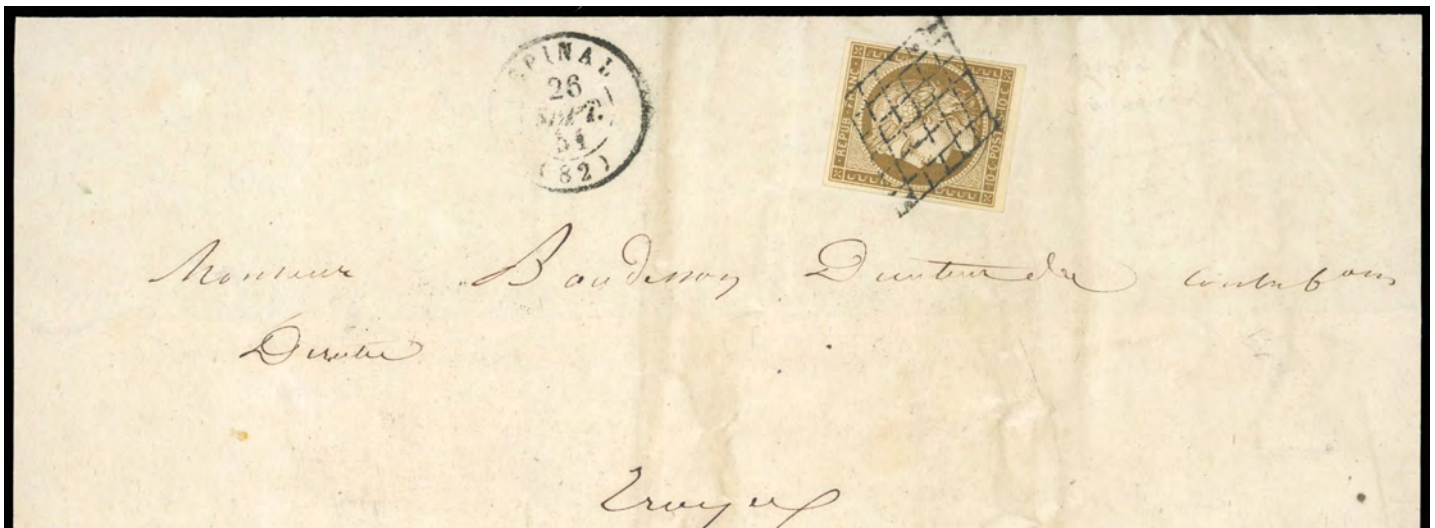 EPINAL
26
SEPT.
51
(82)
REPUB. FRANC.
10 C. POSTES 10 C.
Monsieur Baudesson Directeur des contribons
Directes
Troyes